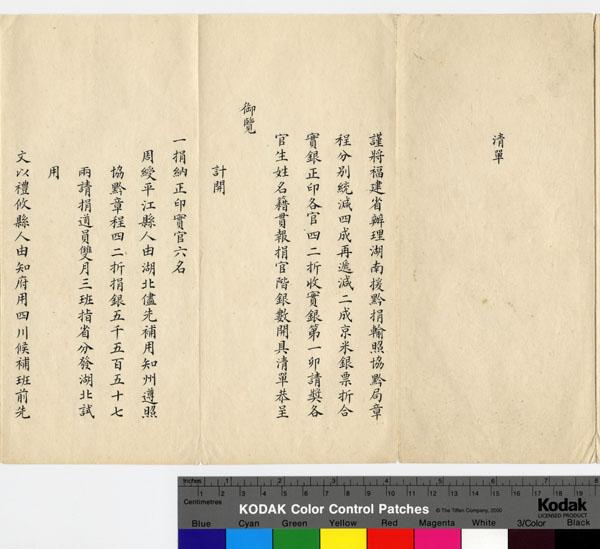 清單
謹將福建省辦理湖南援黔捐輸照協黔局章
程分別統減四成再遞減二成京米銀票折合
實銀正印各官四二折收實銀第一卯請獎各
官生姓名籍貫報捐官階銀數開具清單恭呈
御覽
計開
一捐納正印實官六名
周綬平江縣人由湖北儘先補用知州遵照
協黔章程四二折捐銀五千五百五十七
兩請捐道員雙月三班指省分發湖北試
用
文以禮攸縣人由知府用四川候補班前先
Inches 1 2 3 4 5 6 7 8
Centimetres 1 2 3 4 5 6 7 8 9 10 11 12 13 14 15 16 17 18 19
KODAK Color Control Patches © The Tiffen Company, 2000 Kodak
LICENSED PRODUCT
Blue Cyan Green Yellow Red Magenta White 3/Color Black